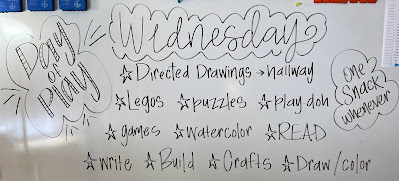 Wednesday
Day
of
Play
☆Directed Drawings → hallway
☆Legos ☆puzzles ☆play doh
☆games ☆watercolor ☆READ
☆write ☆Build ☆Crafts ☆Draw/color
one
snack
whenever